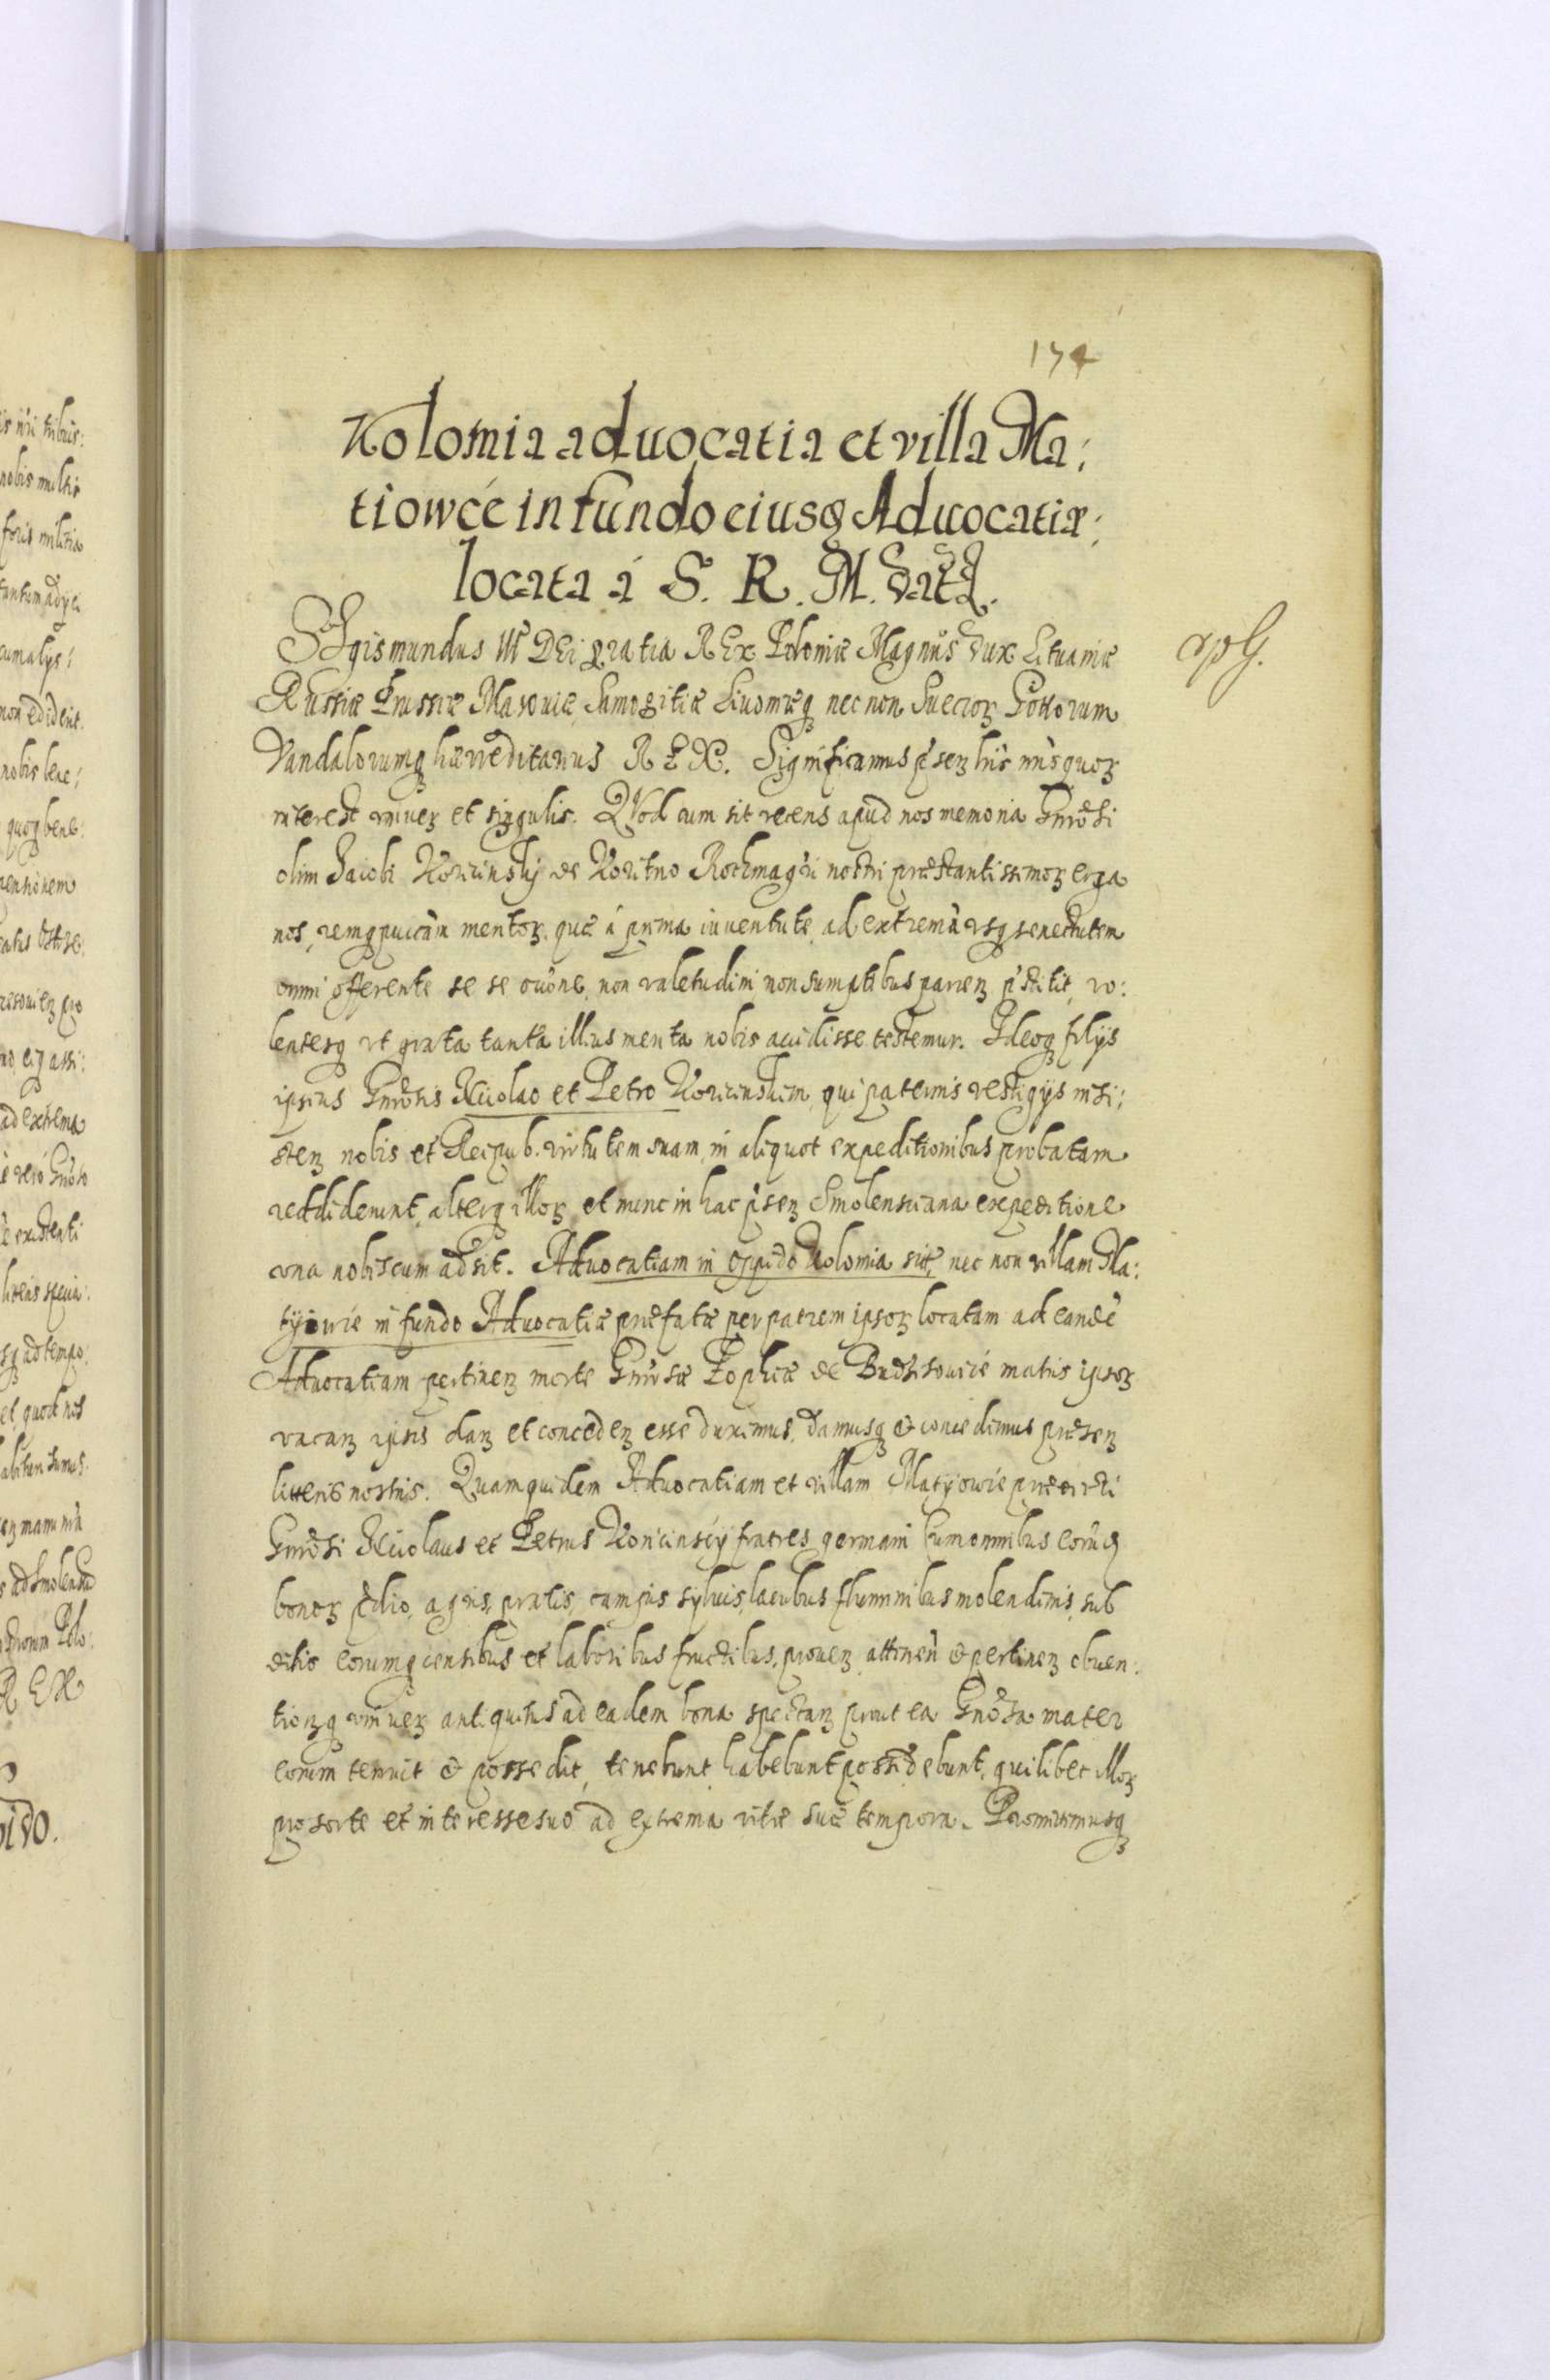 174
Kolomia aduocatia et villa Ma:
tiowcé in fundo eiusq Aduocatiæ:
locata á S. R. M. datq.
SIgismundus III DEi gratia REx Poloniæ Magnus dux Lituaniæ
Russiæ Prussiæ Masouiæ Samogitiæ Liuoniæq nec non Sueccorz Gottorum
Vandalorumq hæreditarius REX. Significamus p̃senz lr̃is nr̃is quorz
interest vniuerz et singulis. QVod cum sit recens apud nos memoria Gnrosi
olim Jacobi Koricinskij de Koritno Rothmagr̃i nostri præstantissimorz erga
nos, remq puicam meritorz, quæ á prima iuuentute, ad extremã vsq senectutem
omni offerente se se occ̃one, non valetudini non sumptibus parcenz p̃stitit, vo:
lentesq vt grata tanta illius merita nobis accidisse testemur. Ideoq filijs
ipsius Gnrosis Nicolao et Petro Koricinskim, qui paternis vestigijs insi:
stenz nobis et Reipub. virtutem suam in aliquot expeditionibus probatam
reddiderunt, alterq illorz et nunc in hac p̃senz Smolensciana expeditione
vna nobiscum adsit. Aduocatiam in oppido Kolomia sitã, nec non villam Ma:
tyiowcé in fundo Aduocatiæ præfatæ per patrem ipsorz locatam ad eandẽ
Aduocatiam pertinenz morte Gnrosæ Zophiæ de Budziszowicé matris ipsorz
vacanz ipsis danz et concedenz esse duximus, damusq & concedimus præsenz
litteris nostris. Quamquidem Aduocatiam et villam Matyiowcé prædicti
Gnrosi Nicolaus et Petrus Koricinscÿ fratres germani cum omnibus eorũd
bonorz p̃dio, agris, pratis, campis syluis, lacubus fluminibus molendinis, sub
ditis eorumq censibus et laboribus fructibus, prouenz attinen̄ & pertinenz obuen:
tionzq vniuerz antiquitus ad eadem bona spectanz prout ea Gnosa mater
eorum tenuit & possedit, tenebunt habebunt possidebunt, quilibet illorz
pro sorte et interesse suo ad extrema vitæ suæ tempora. Promittimusq